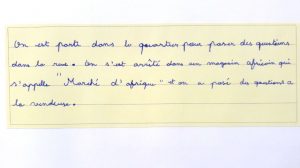 On est partie dans le quartier pour poser des questions
dans la rue. On s'est arrêté dans un magasin africain qui
s'appelle "Marché d'afrique" et on a posé des questions a
la vendeuse.